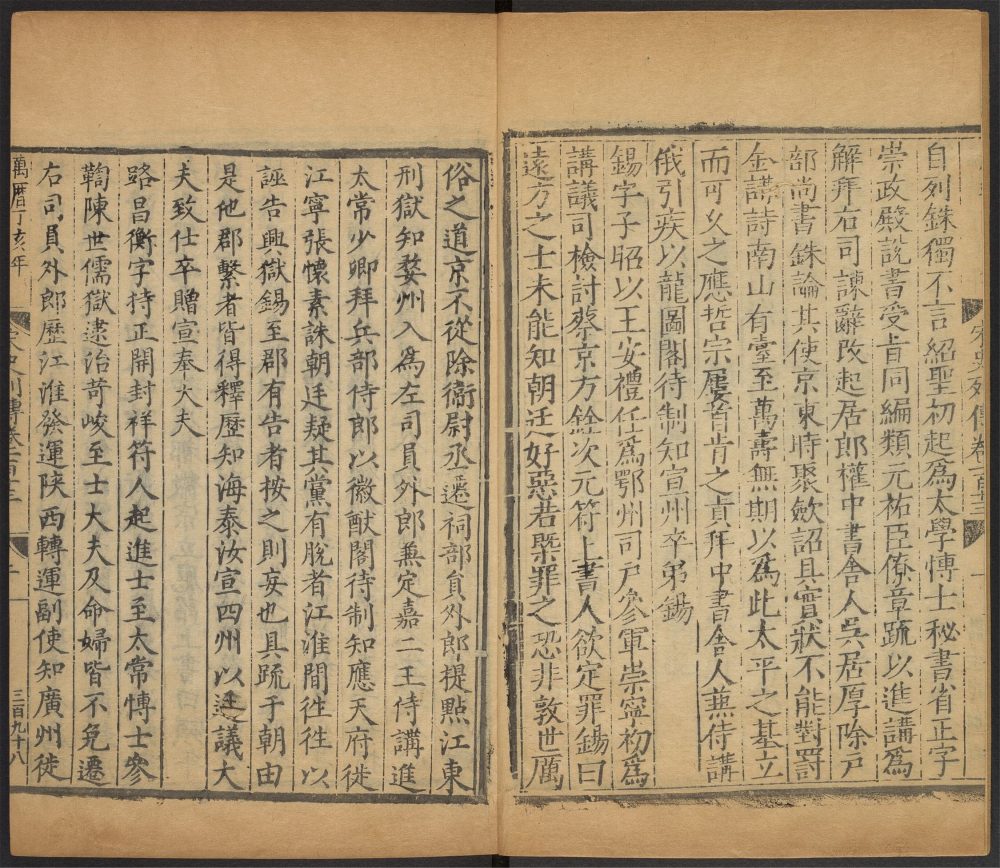 自列銖獨不言紹聖初起爲太學慱士秘書省正字
崇政殿說書受旨同編類元祐臣僚章疏以進講爲
解拜右司諌辭改起居郎權中書舍人吳居厚除戸
部尚書銖論其使京東時聚歛詔具實狀不能對罸
金講詩南山有臺至萬壽無期以爲此太平之基立
而可久之應哲宗屢首肯之眞拜中書舎人兼侍講
俄引疾以龍圖閣待制知宣州卒弟錫
錫字子昭以王安禮任爲鄂州司戸參軍崇寧初爲
講議司檢討蔡京方銓次元符上書人欲定罪錫曰
遠方之士未能知朝廷好惡若槩罪之恐非敦世厲
宋史列傳卷一百十三
俗之道京不從除衞尉丞遷祠部貟外郎提點江東
刑獄知婺州入爲左司員外郎兼定嘉二王侍講進
太常少卿拜兵部侍郎以徽猷閣待制知應天府徙
江寧張懷素誅朝廷疑其黨有脫者江淮間徃徃以
誣告興獄錫至郡有告者按之則妄也具疏于朝由
是他郡繫者皆得釋歷知海泰汝宣四州以通議大
夫致仕卒贈宣奉大夫
路昌衡字持正開封祥符人起進士至太常慱士參
鞫陳世儒獄逮治苛峻至士大夫及命婦皆不免遷
右司員外郎歷江淮發運陝西轉運副使知廣州徙
萬曆丁亥年
三百九十八